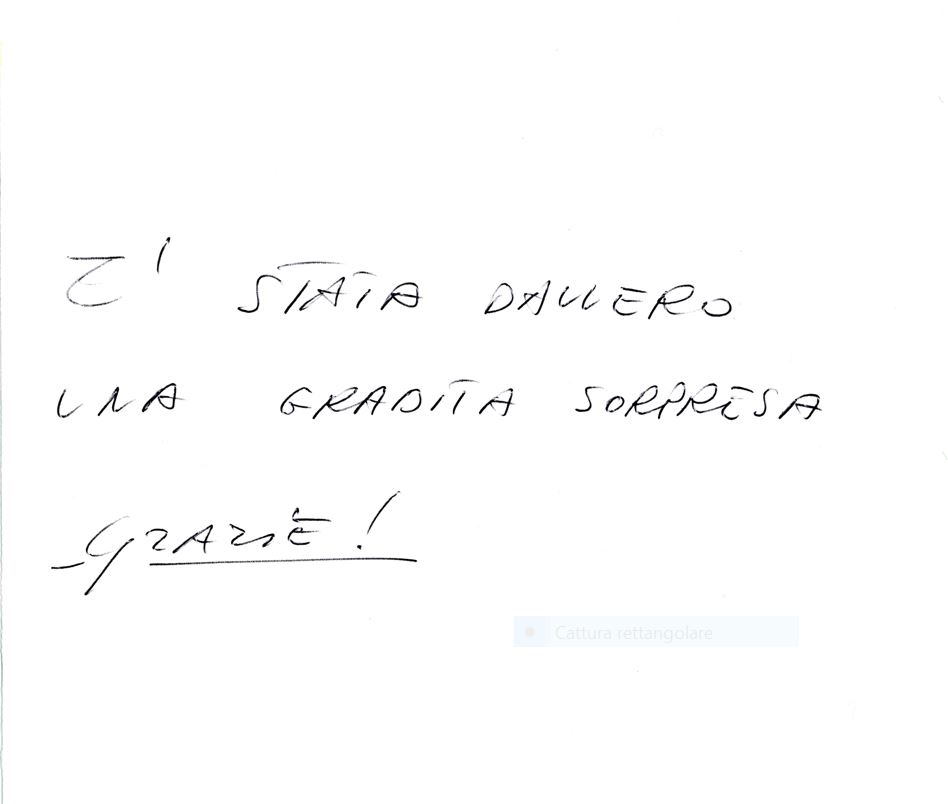 E' STATA DAVVERO
UNA GRADITA SORPRESA
GRAZIE!
Cattura rettangolare